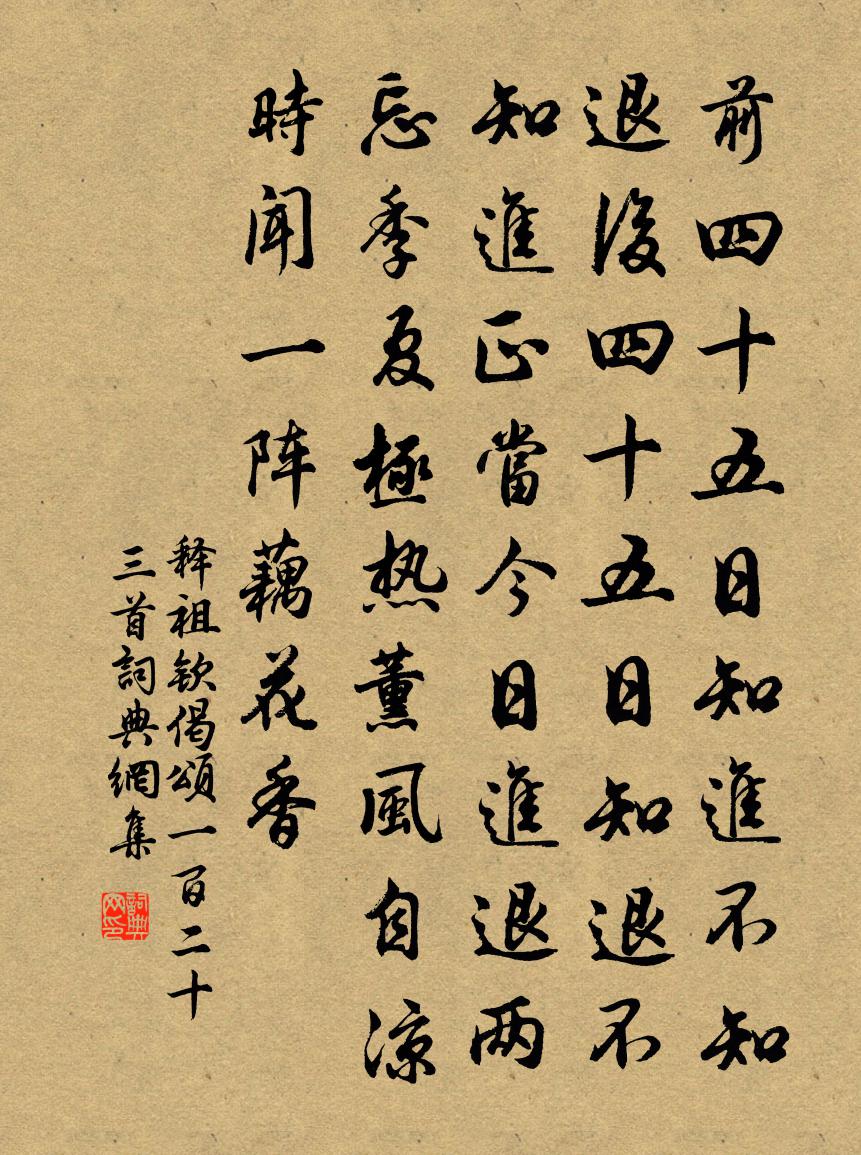 前四十五日知進不知
退後四十五日知退不
知進正當今日進退两
忘季夏極热薰風自凉
時闻一阵藕花香
释祖钦偈頌一百二十
三首詞典網集
詞典
网印